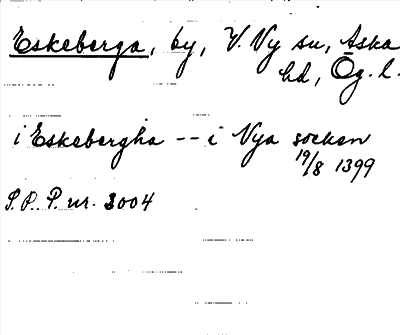 Eskeberga, by, V. Ny sn, Aska
hd, Ög. l.
i Eskebergha -- i Nya socken
19/8 1399
S.R.P. nr. 3004